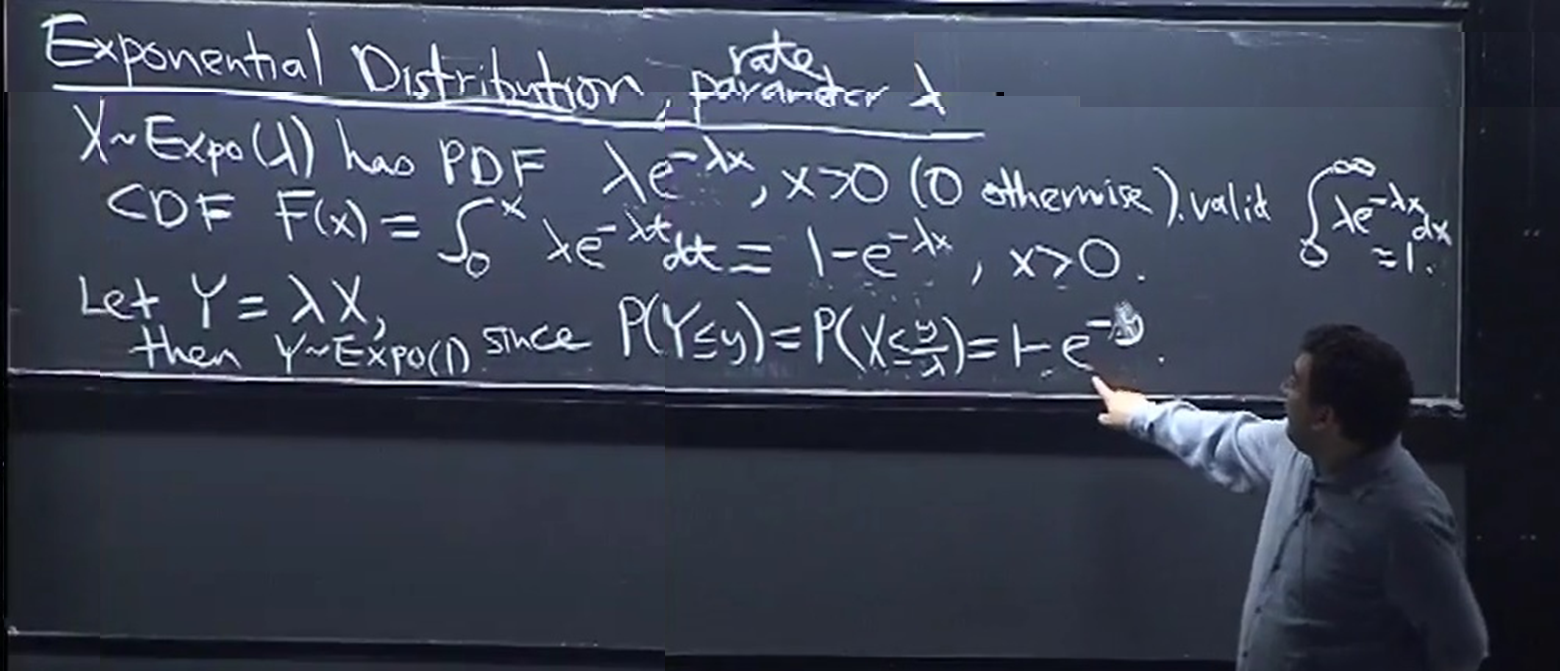 Exponential Distribution, rate parameter λ
X~Expo(λ) has PDF λe^{-λx}, x>0 (0 otherwise). valid ∫_0^∞ λe^{-λx}dx =1.
CDF F(x) = ∫_0^x λe^{-λt}dt = 1-e^{-λx}, x>0.
Let Y = λX,
then Y~Expo(1) since P(Y≤y)=P(X≤y/λ)=1-e^{-y}.